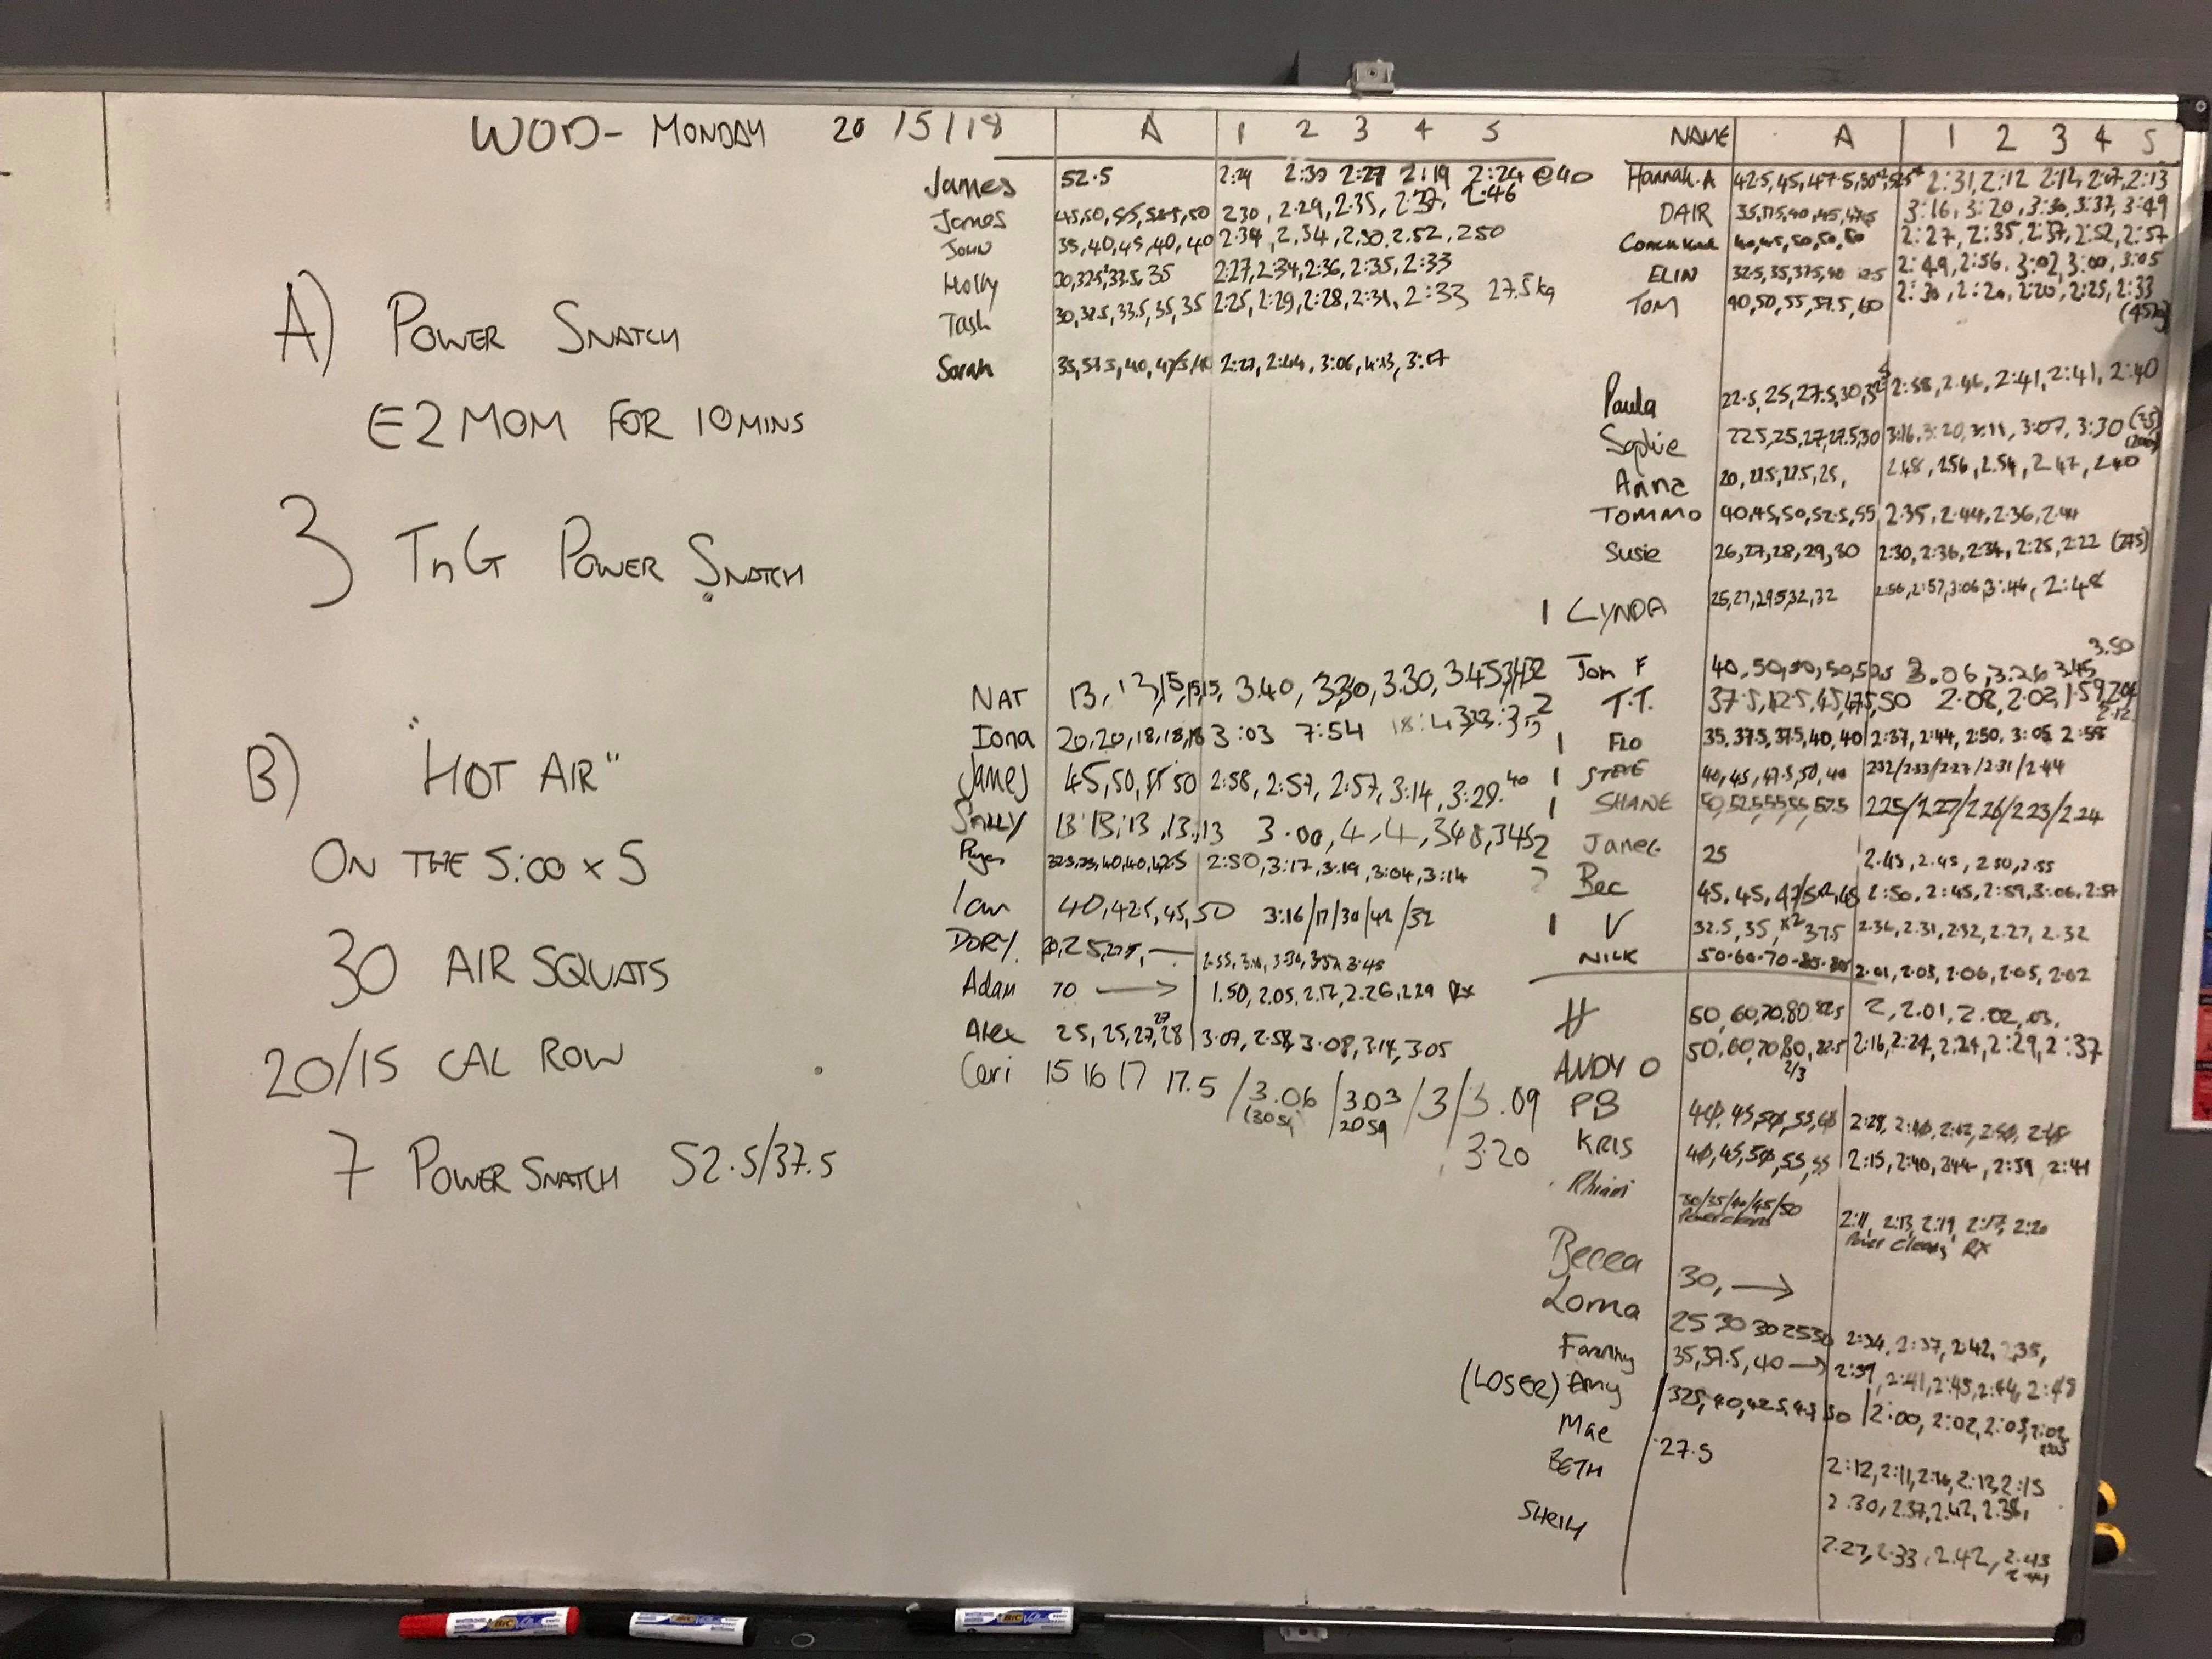 WOD- MONDAY 20/5/18
A) POWER SNATCH
E2MOM FOR 10MINS
3 TnG POWER SNATCH
B) "HOT AIR"
ON THE 5:00 x 5
30 AIR SQUATS
20/15 CAL ROW
7 POWER SNATCH 52.5/37.5
A 1 2 3 4 5
James 52.5 2:30 2:27 2:19 2:24 @40
James 2.29, 2.35, 2:37, 2:46
JOHN 35, 40, 45, 40, 40 2.34, 2.34, 2.50, 2.52, 250
Holly 35 2:27, 2:34, 2:36, 2:35, 2:33
Tash 30, 32.5, 33.5, 35, 35 2:25, 2:29, 2:28, 2:31, 2:33 27.5kg
Sarah 2:27, 2:44, 3:06
NAT 13, 13, 15, 15, 15, 3.40, 3.30, 3.30, 3.45
Iona 20, 20, 18, 18, 18 3:03 7:54
James 45, 50, 55 50 2:58, 2:57, 2:57, 3:14, 3:29. 40
Sally 13, 13, 13, 13, 13 3.00, 4, 4, 348, 345
2:50, 3:17, 3:19, 3:04, 3:14
Ian 40, 42.5, 45, 50 3:16/17/30/42/32
DORY.
Adam 70 → 1.50, 2.05, 2.17, 2.26, 2.29 Rx
Alex 25, 25, 27, 27 28 3.07, 2.58, 3.08, 3.14, 3.05
Ceri 15 16 17 17.5 / 3.06 / 3.03 / 3 / 3.09
3.20
NAME A 1 2 3 4 5
Hannah.A 42.5, 45, 47.5, 2:31, 2:12 2:12, 2:07, 2:13
DAIR 3:16, 3:20, 3:30, 3:37, 3:49
2:27, 2:35, 2:37, 2:52, 2:57
ELIN 32.5, 35, 37.5, 40 2:49, 2:56, 3:02, 3:00, 3:05
TOM 40, 50, 55, 57.5, 60 2:30, 2:20, 2:20, 2:25, 2:33
(45kg)
Paula 22.5, 25, 27.5, 30, 32.5 2:58, 2.46, 2:41, 2:41, 2:40
Sophie 22.5, 25, 27, 27.5, 30 3:16, 3:20, 3:11, 3:07, 3:30
Anna 20, 22.5, 22.5, 25, 2.48, 2.56, 2.54, 2.47, 2.40
TOMMO 40, 45, 50, 52.5, 55 2.35, 2.44, 2.36, 2.41
Susie 26, 27, 28, 29, 30 2:30, 2:36, 2:34, 2:25, 2:22 (27.5)
1 LYNDA 25, 27, 29.5, 32, 32 2:56, 2:57, 3:06, 3:46, 2:48
Tom F 40, 50, 50, 50, 52.5 3.06, 3.26 3.45 3.50
2 T.T. 37.5, 42.5, 45, 47.5, 50 2.08, 2.02, 1.59, 2.04 2.12
1 FLO 35, 37.5, 37.5, 40, 40 2:37, 2:44, 2:50, 3:05 2:58
1 STEVE 40, 45, 47.5, 50, 40 2:32/2:33/2:27/2:31/2:44
1 SHANE 50, 52.5, 55, 55, 57.5 2.25/2.27/2.26/2.23/2.24
2 Janet 25 2.43, 2.45, 2.50, 2.55
2 Bec 45, 45, 2:50, 2:45, 2:59, 3:06, 2:57
1 V 32.5, 35, x2 37.5 2.36, 2.31, 2.32, 2.27, 2.32
NICK 50-60-70-85- 2.01, 2.03, 2.06, 2.05, 2.02
H 50, 60, 70, 80 82.5 2, 2.01, 2.02, .03,
ANDY O 50, 60, 70 80, 82.5 2/3 2:16, 2:24, 2:24, 2:29, 2:37
PB 40, 45, 50, 55, 60 2:28, 2:40, 2:42, 2:50, 2:48
KRIS 40, 45, 50, 55, 55 2:15, 2:40, 2:44, 2:39 2:41
Rhian 30/35/40/45/50 2:11, 2:13, 2:19, 2:17, 2:20
Power cleans Power Cleans RX
Becca 30, →
Lorna 25 30 30 25 30 2:34, 2:37, 2:42, 2:35,
Fanny 35, 37.5, 40 → 2:39, 2:41, 2:45, 2:44, 2:48
(LOSER) Amy 32.5, 40, 42.5, 45, 50 2:00, 2:02, 2:03, 2:02,
Mae 27.5 2:12, 2:11, 2:16, 2:13, 2:15
BETH 2.30, 2.37, 2.42, 2.38,
2.27, 2.33, 2.42, 2.43